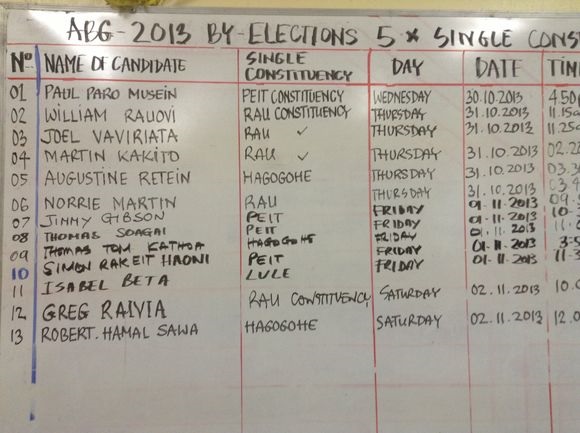 ABG-2013 BY-ELECTIONS 5 x SINGLE CONS
No NAME OF CANDIDATE SINGLE CONSTITUENCY DAY DATE TIM
01 PAUL PARO MUSEIN PEIT CONSTITUENCY WEDNESDAY 30.10.2013 4.50
02 WILLIAM RAUOVI RAU CONSTITUENCY THURSDAY 31.10.2013 11.15
03 JOEL VAVIRIATA RAU ✓ THURSDAY 31.10.2013 11.25
04 MARTIN KAKITO RAU ✓ THURSDAY 31.10.2013 02.2
05 AUGUSTINE RETEIN HAGOGOHE THURSDAY 31.10.2013 03.3
06 NORRIE MARTIN RAU THURSDAY 31.10.2013 03.4
07 JIMMY GIBSON PEIT FRIDAY 01.11.2013 09.
08 THOMAS SOAGAI PEIT FRIDAY 01.11.2013 10-
09 THOMAS TOM KATHOA HAGOGOHE FRIDAY 01.11.2013 3.5
10 SIMON RAKEIT HAONI PEIT FRIDAY 01.11.2013 11.3
11 ISABEL BETA LULE
12 GREG RAIVIA RAU CONSTITUENCY SATURDAY 02.11.2013 10.0
13 ROBERT.HAMAL SAWA HAGOGOHE SATURDAY 02.11.2013 12.0